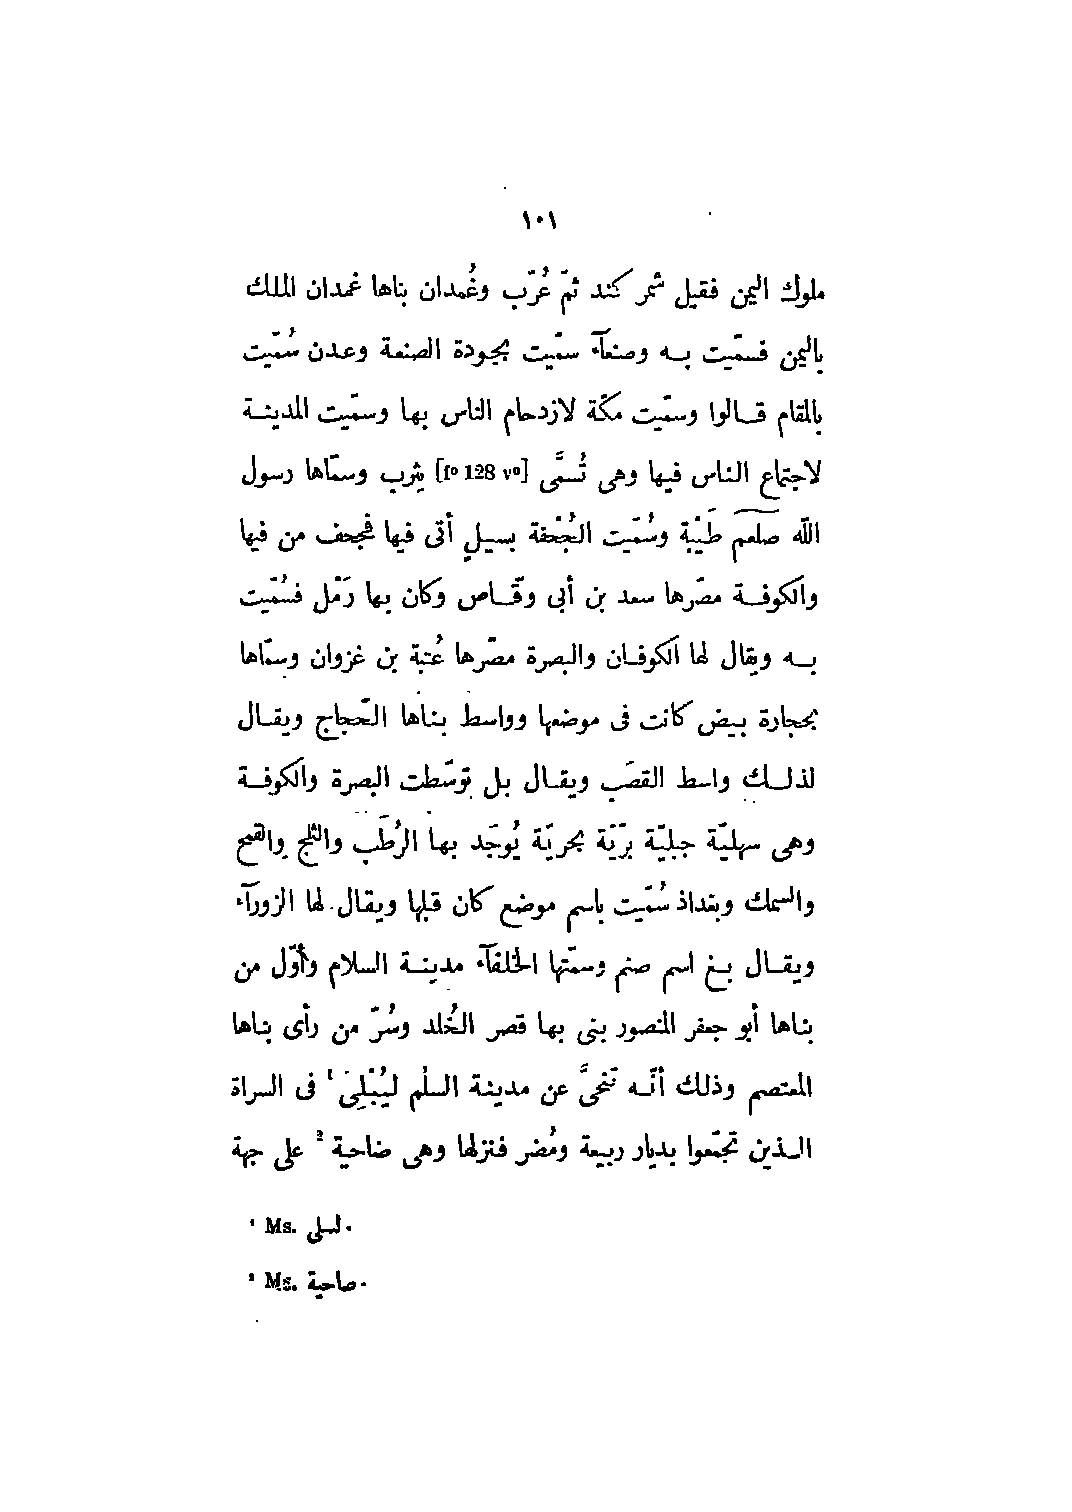 ١٠١
ملوك اليمن فقيل شمر كند ثمّ عُرّب وغُمدان بناها غمدان الملك
باليمن فسمّيت به وصنعآء سمّيت بجودة الصنعة وعدن سُمّيت
بالمقام قالوا وسمّيت مكّة لازدحام الناس بها وسمّيت المدينة
لاجتماع الناس فيها وهى تُسمَّى [fº 128 vº] يثرب وسمّاها رسول
الله صلعم طَيْبة وسُمّيت الجُحْفة بسيلٍ أتى فيها فجحف من فيها
والكوفة مصّرها سعد بن أبى وقّاص وكان بها رَمْل فسُمّيت
به ويقال لها الكوفان والبصرة مصّرها عُتبة بن غزوان وسمّاها
بحجارة بيض كانت فى موضعها وواسط بناها الحجّاج ويقال
لذلك واسط القصَب ويقال بل توسّطت البصرة والكوفة
وهى سهليّة جبليّة برّيّة بحريّة يُوجَد بها الرُطَب والثلج والقمح
والسمك وبغداذ سُمّيت باسم موضع كان قبلها ويقال لها الزورآء
ويقال بغ اسم صنم وسمّتها الخلفآء مدينة السلام وأوّل من
بناها أبو جعفر المنصور بنى بها قصر الخُلد وسُرّ من رأى بناها
المعتصم وذلك أنّه تنحَّى عن مدينة السلٰم ليُبْلِىَ ¹ فى السراة
الذين تجمّعوا بديار ربيعة ومُضر فنزلها وهى ضاحية ² على جهة
¹ Ms. لسلى.
² Ms. صاحية.